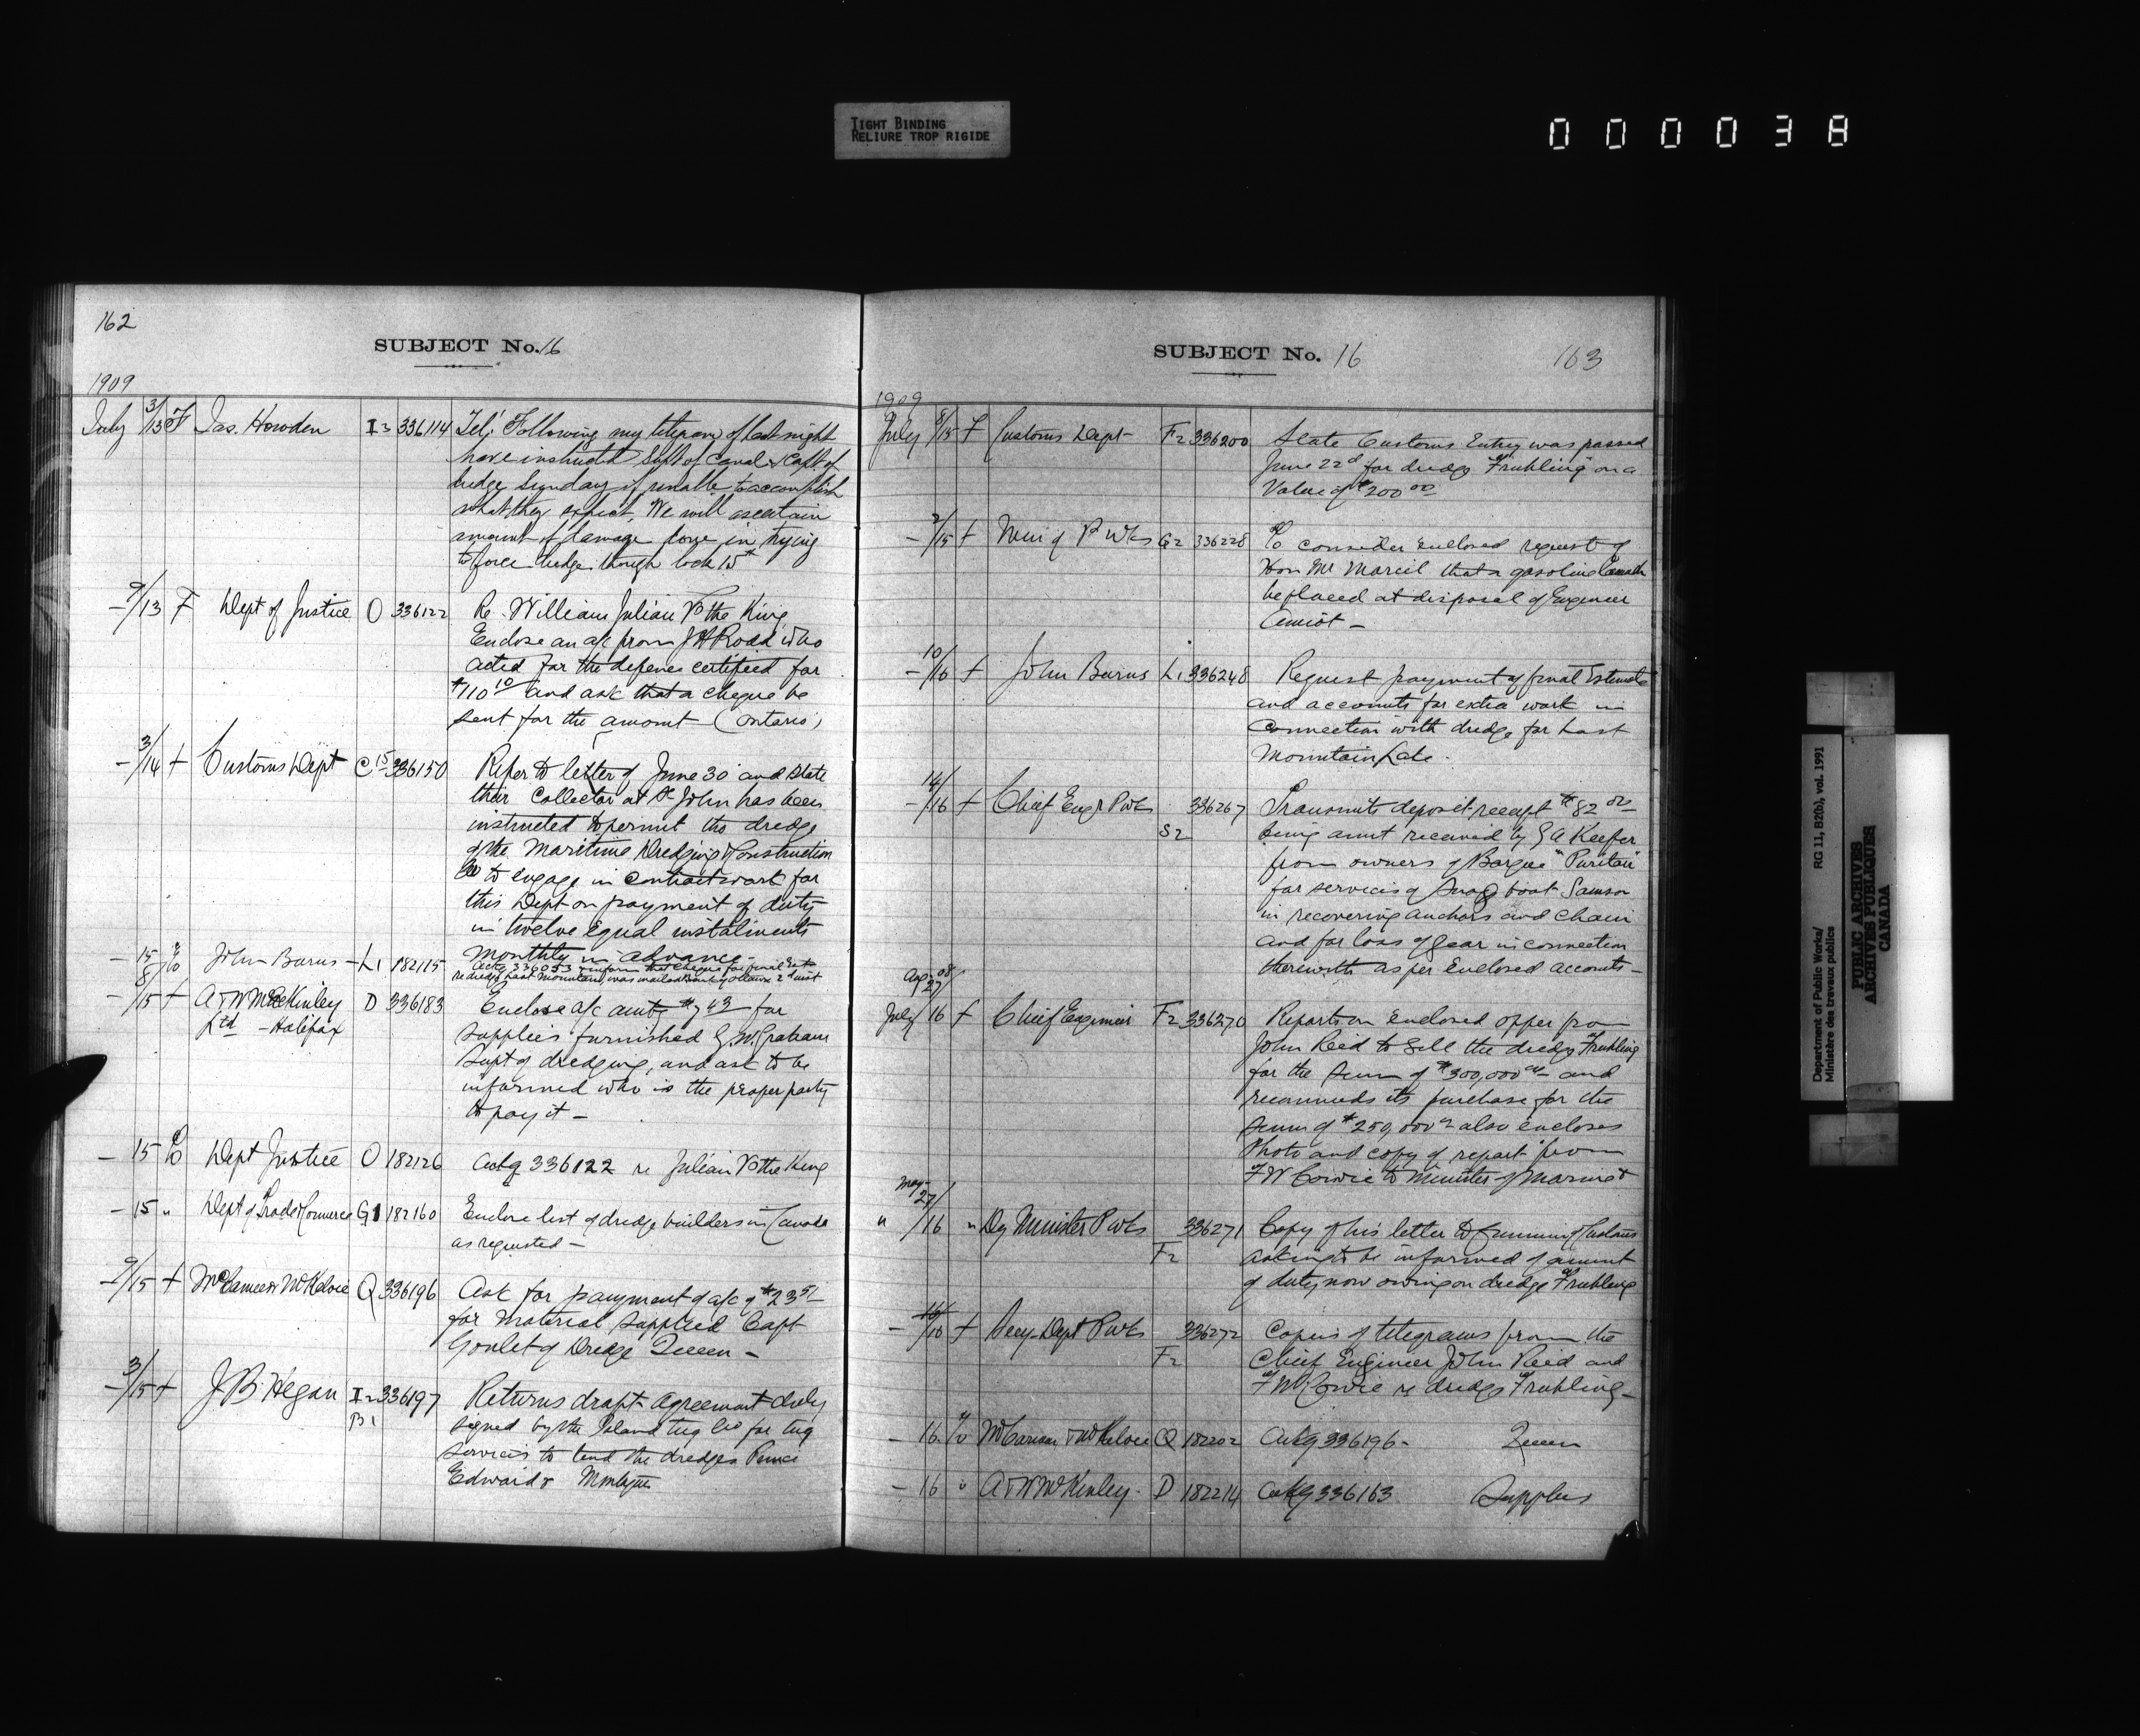 TIGHT BINDING
RELIURE TROP RIGIDE
000038
162
SUBJECT No. 16
1909
July 3/13 F Jas. Howden I2 336114 Tel; Following my telegram of last night
have instructed Supt of Canal & Capt of
dredge Sunday if unable to accomplish
what they expect. We will ascertain
amount of damage done in trying
to force dredge through lock 15th
– 9/13 F Dept of Justice O 336122 Re William Julian Vs the King
Enclose an a/c from J H Rodd who
acted for the defence certified for
$110 10 and ask that a cheque be
sent for the amount (Ontario)
– 3/14 F Customs Dept C15 336150 Refer to letter of June 30 and state
their Collector at St John has been
instructed to permit the dredge
of the Maritime Dredging & Construction
Co to engage in contract work for
this Dept on payment of duty
in twelve equal instalments
monthly in advance –
– 15 To John Burns L1 182115 Ackg 336053 & inform that cheque for final Est
re dredge Last Mountain, was mailed 2d inst
– 8/15 F A & W MacKinley D 336183 Enclose a/c amtg $7 43 for
Ltd – Halifax
supplies furnished G.W. Graham
Supt of dredging, and ask to be
informed who is the proper party
to pay it –
– 15 To Dept Justice O 182126 Ackg 336122 re Julian Vs the King
– 15 " Dept of Trade & Commerce G1 182160 Enclose list of dredge builders in Canada
as requested –
– 9/15 F & McKelvie Q 336196 Ask for payment of a/c of $23 51
for material supplied Capt
Goulet of Dredge Queen –
– 3/15 F J B. Hegan I2 336197 Returns draft agreement duly
B1
signed by the Island Tug Co for tug
services to tend the dredges Prince
Edward &
SUBJECT No. 16
163
1909
July 8/15 F Customs Dept F2 336200 State Customs Entry was passed
June 22d for dredge "Fruhling" on a
Value of $200 00
– 2/15 F Min of P Wks G2 336228 To consider enclosed request of
Hon Mr Marcil that a gasoline launch
be placed at disposal of Engineer
Amiot –
– 10/16 F John Burns L1 336248 Request payment of final Estimate
and accounts for extra work in
connection with dredge for Last
Mountain Lake.
– 14/16 F Chief Engr P Wks 336267 Transmits deposit receipt $82 00
S2
being amt received by G A Keefer
from owners of Barque "Puritan"
for services of Snag boat Samson
in recovering anchors and chain
and for loss of gear in connection
therewith as per enclosed accounts –
Apr 08
27/
July 16 F Chief Engineer F2 336270 Reports on enclosed offer from
John Reed to sell the dredge "Fruhling"
for the sum of $300,000 00 – and
recommends its purchase for the
sum of $250,000 00 also encloses
Photo and copy of report from
F W Cowie to Minister of Marine &
May
27/
" /16 " Dy Minister P Wks 336271 Copy of his letter to Customs
F2
asking to be informed of amount
of duty now owing on dredge "Fruhling"
– 16/16 F Secy Dept P Wks 336272 Copies of telegrams from the
F2
Chief Engineer John Reid and
F W Cowie re dredge "Fruhling" –
– 16 To & McKelvie Q 182202 Ackg 336196 – Queen
– 16 " A & W McKinley – D 182214 Ackg 336163 Supplies
Department of Public Works/
Ministère des travaux publics
RG 11, B2(b), vol. 1991
PUBLIC ARCHIVES
ARCHIVES PUBLIQUES
CANADA